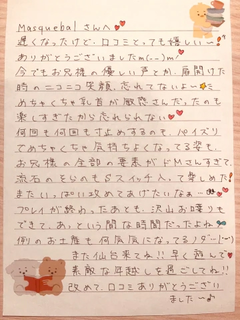 Masquebal さんへ
遅くなったけど、口コミとっても嬉しい～!
ありがとうございましたm(_ _)m!
今でもお兄様の優しい声とか、扉開けた
時のニコニコ笑顔、忘れてないよ～
めちゃくちゃ乳首が敏感さんだったのも
楽しすぎたから忘れられない
何回も何回も寸止めするのも、パイズリ
でめちゃくちゃ気持ちよくなってる姿も、
お兄様の全部の要素がドMさんすぎて、
流石のそらのもSスイッチ入って楽しめた!
またいっぱい攻めてあげたいなぁ…
プレイが終わったあとも、沢山お喋りも
できて、あっという間な時間だったよね
例のお土産も何気気になってるノダ…!
また仙台来てね!!早く会いて
素敵な年越しを過ごしてね!!
改めて、口コミありがとうござい
ました～♪